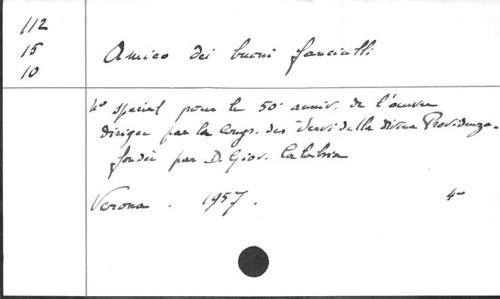 112
15
10
Amico dei buoni fanciulli
N° spécial pour le 50e anniv. de l'œuvre
dirigée par la Congr. des "Servi della Divina Providenza"
fondée par D. Giov. Calabria
Verona. 1957. 4°